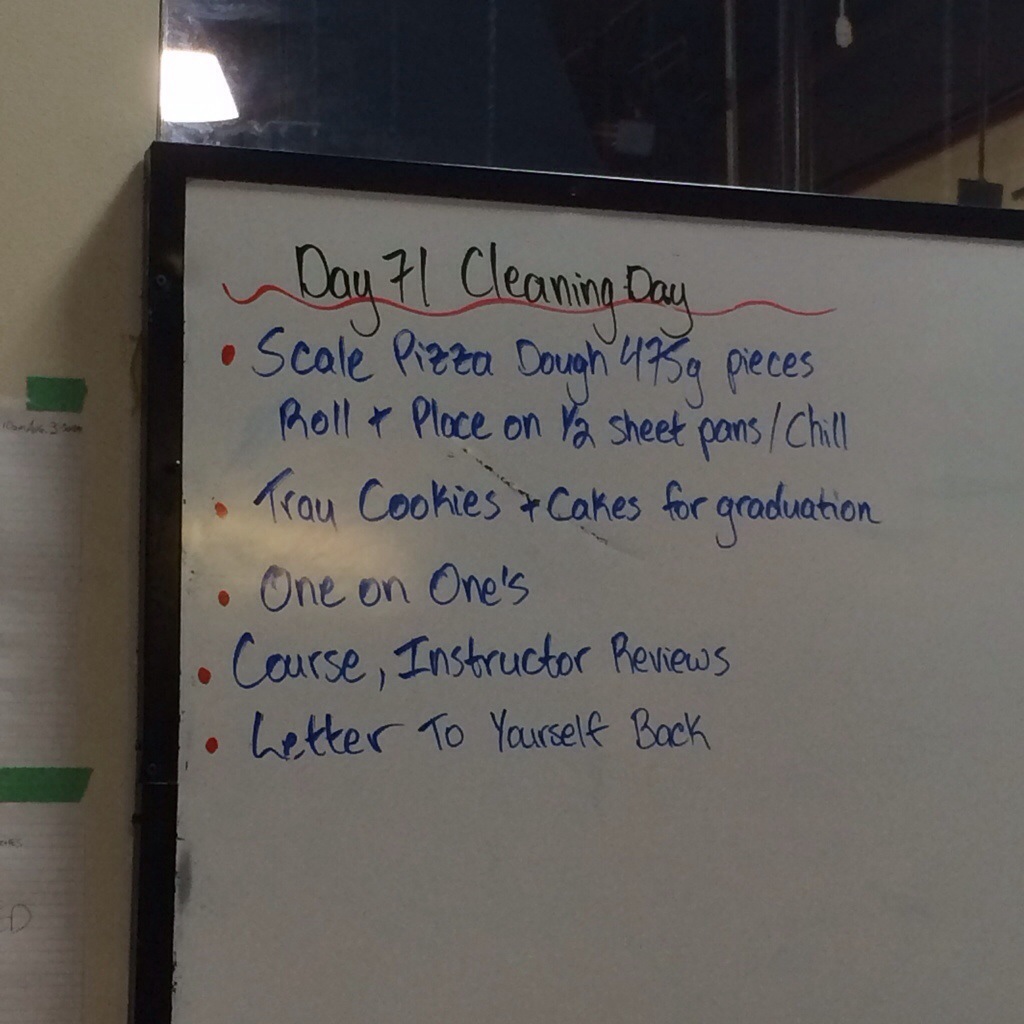 Day 71 Cleaning Day
• Scale Pizza Dough 475g pieces
Roll + Place on 1/2 sheet pans/Chill
• Tray Cookies + Cakes for graduation
• One on One's
• Course, Instructor Reviews
• Letter To Yourself Back